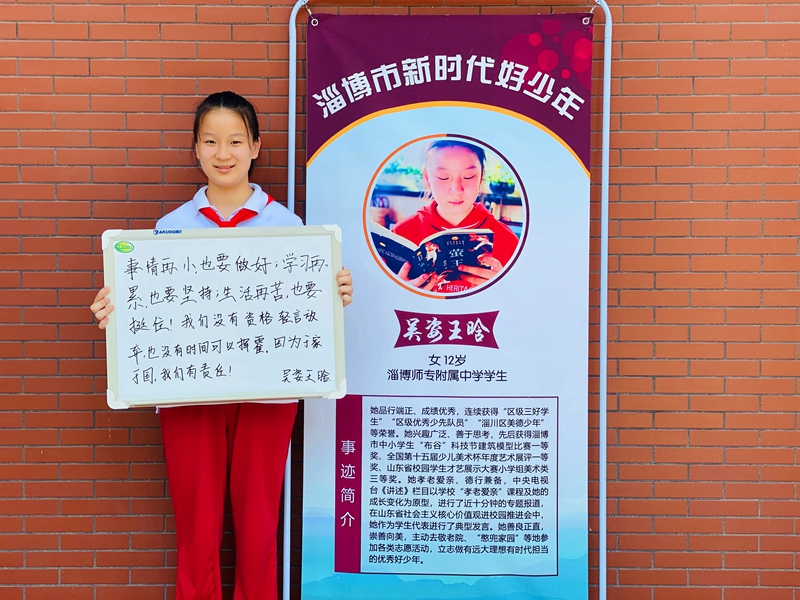 淄博市新时代好少年
AKUDORE
事情再小也要做好；学习再
累，也要坚持；生活再苦，也要
挺住！我们没有资格轻言放
弃，也没有时间可以挥霍。因为于家
于国，我们有责任！
吴姿王晗
吴姿王晗
女 12岁
淄博师专附属中学学生
事迹简介
她品行端正、成绩优秀，连续获得“区级三好学
生”“区级优秀少先队员”“淄川区美德少年”
等荣誉。她兴趣广泛、善于思考，先后获得淄博
市中小学生“布谷”科技节建筑模型比赛一等
奖、全国第十五届少儿美术杯年度艺术展评一等
奖、山东省校园学生才艺展示大赛小学组美术类
三等奖。她孝老爱亲、德行兼备，中央电视
台《讲述》栏目以学校“孝老爱亲”课程及她的
成长变化为原型，进行了近十分钟的专题报道，
在山东省社会主义核心价值观进校园推进会中，
她作为学生代表进行了典型发言。她善良正直，
崇善向美，主动去敬老院、“憨兜家园”等地参
加各类志愿活动，立志做有远大理想有时代担当
的优秀好少年。